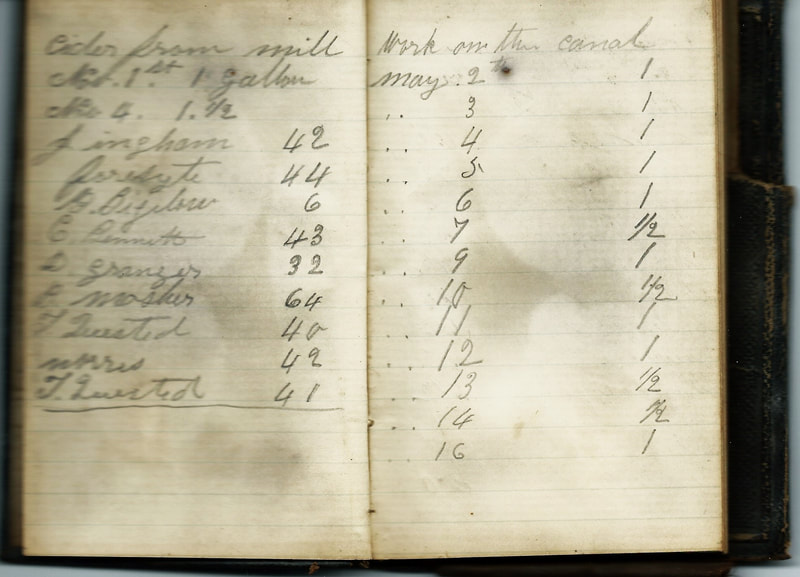 Cider from mill
No. 1st. 1 gallon
No 4. 1. 1/2
Jingham 42
forsyte 44
D. Bigelow 6
C. Bennett 43
D. granger 32
R mosher 64
T. Quested 40
norris 42
T. Quested 41
Work on the canal
may. 2th 1.
.. 3 1
.. 4 1
.. 5 1
.. 6 1
.. 7 1/2
.. 9 1
.. 10 1/2
.. 11 1
.. 12 1
.. 13 1/2
.. 14 1/2
.. 16 1